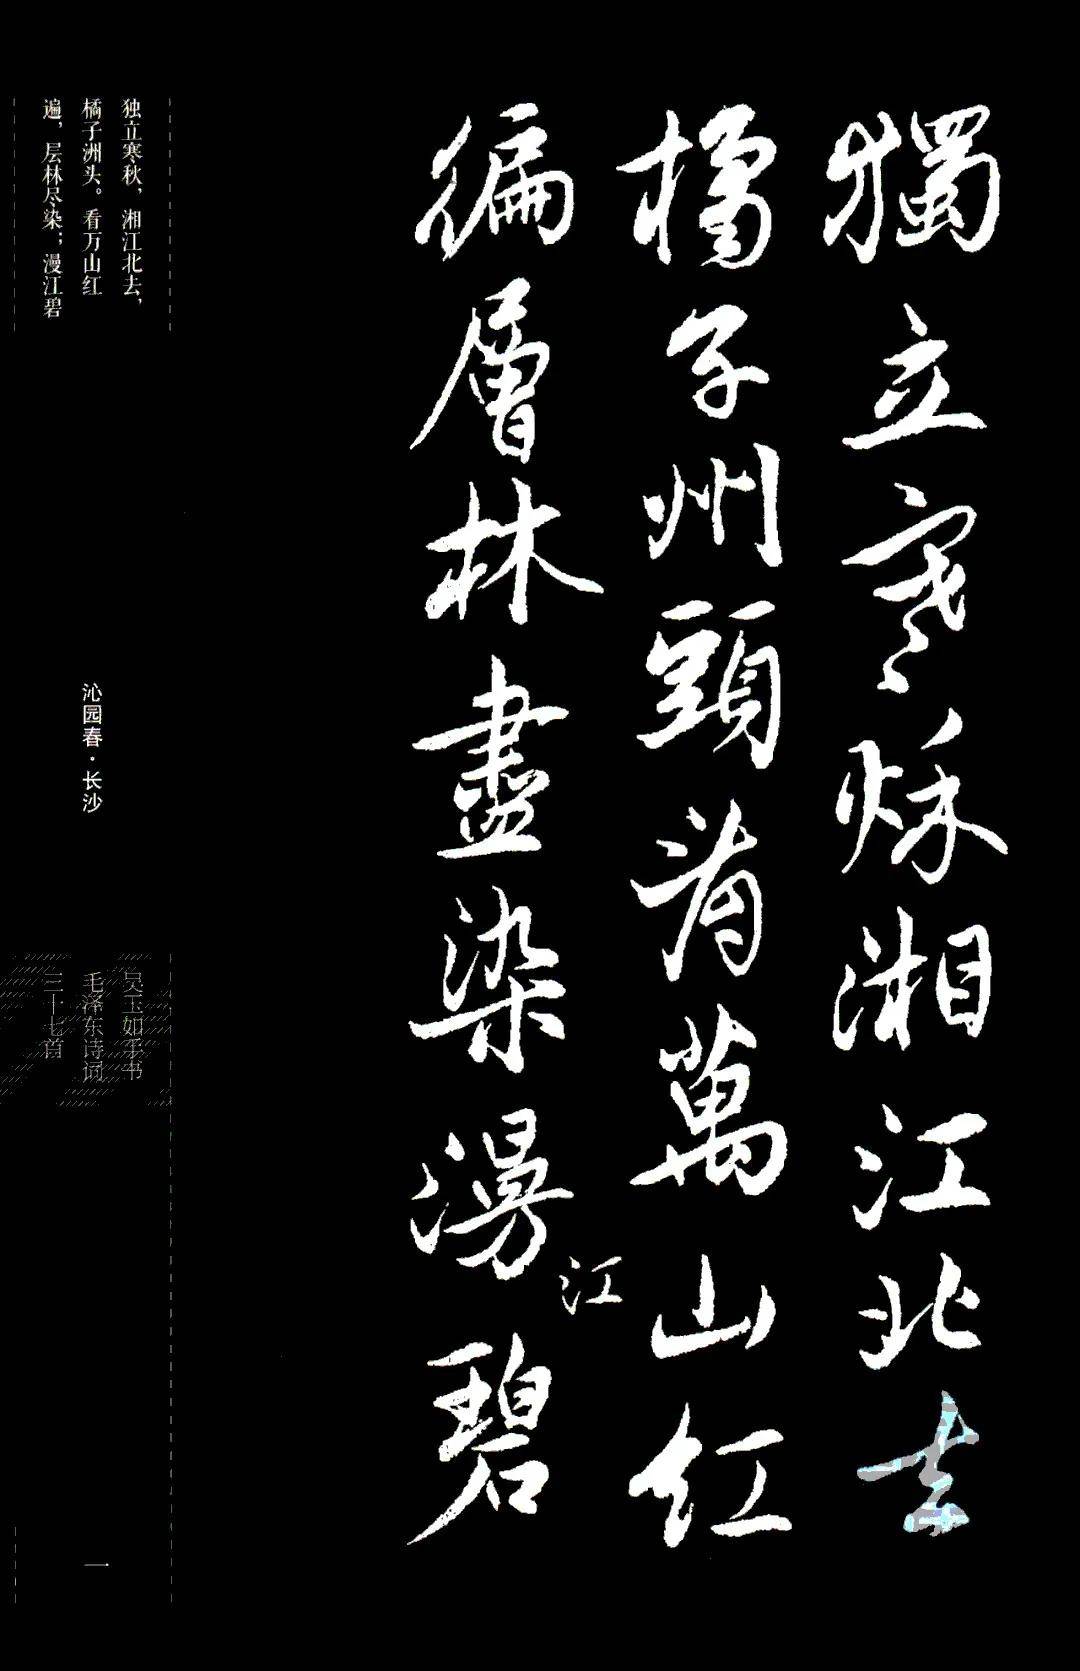 獨立寒秋湘江北去
橘子州頭看萬山红
徧層林盡染漫江碧
独立寒秋，湘江北去，
橘子洲头。看万山红
遍，层林尽染；漫江碧
沁园春·长沙
吴玉如手书
毛泽东诗词
三十七首
一